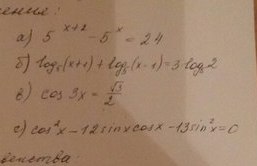 ения:
а) 5^(x+2) - 5^x = 24
б) log₅(x+1) + log₅(x-1) = 3 log 2
в) cos 3x = √3/2
г) cos²x - 12 sinx cosx - 13 sin²x = 0
венства: